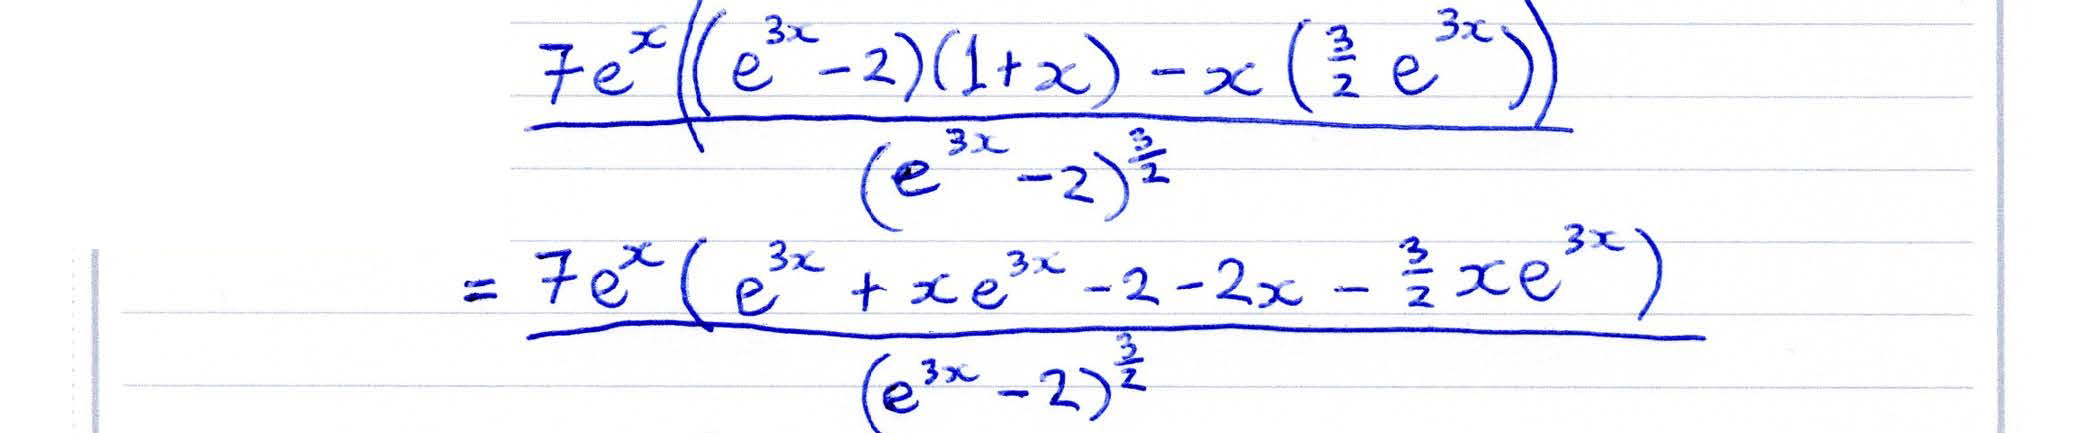 7e^x((e^{3x} - 2)(1 + x) - x(3/2 e^{3x})) / (e^{3x} - 2)^{3/2}
= 7e^x(e^{3x} + xe^{3x} - 2 - 2x - 3/2 xe^{3x}) / (e^{3x} - 2)^{3/2}